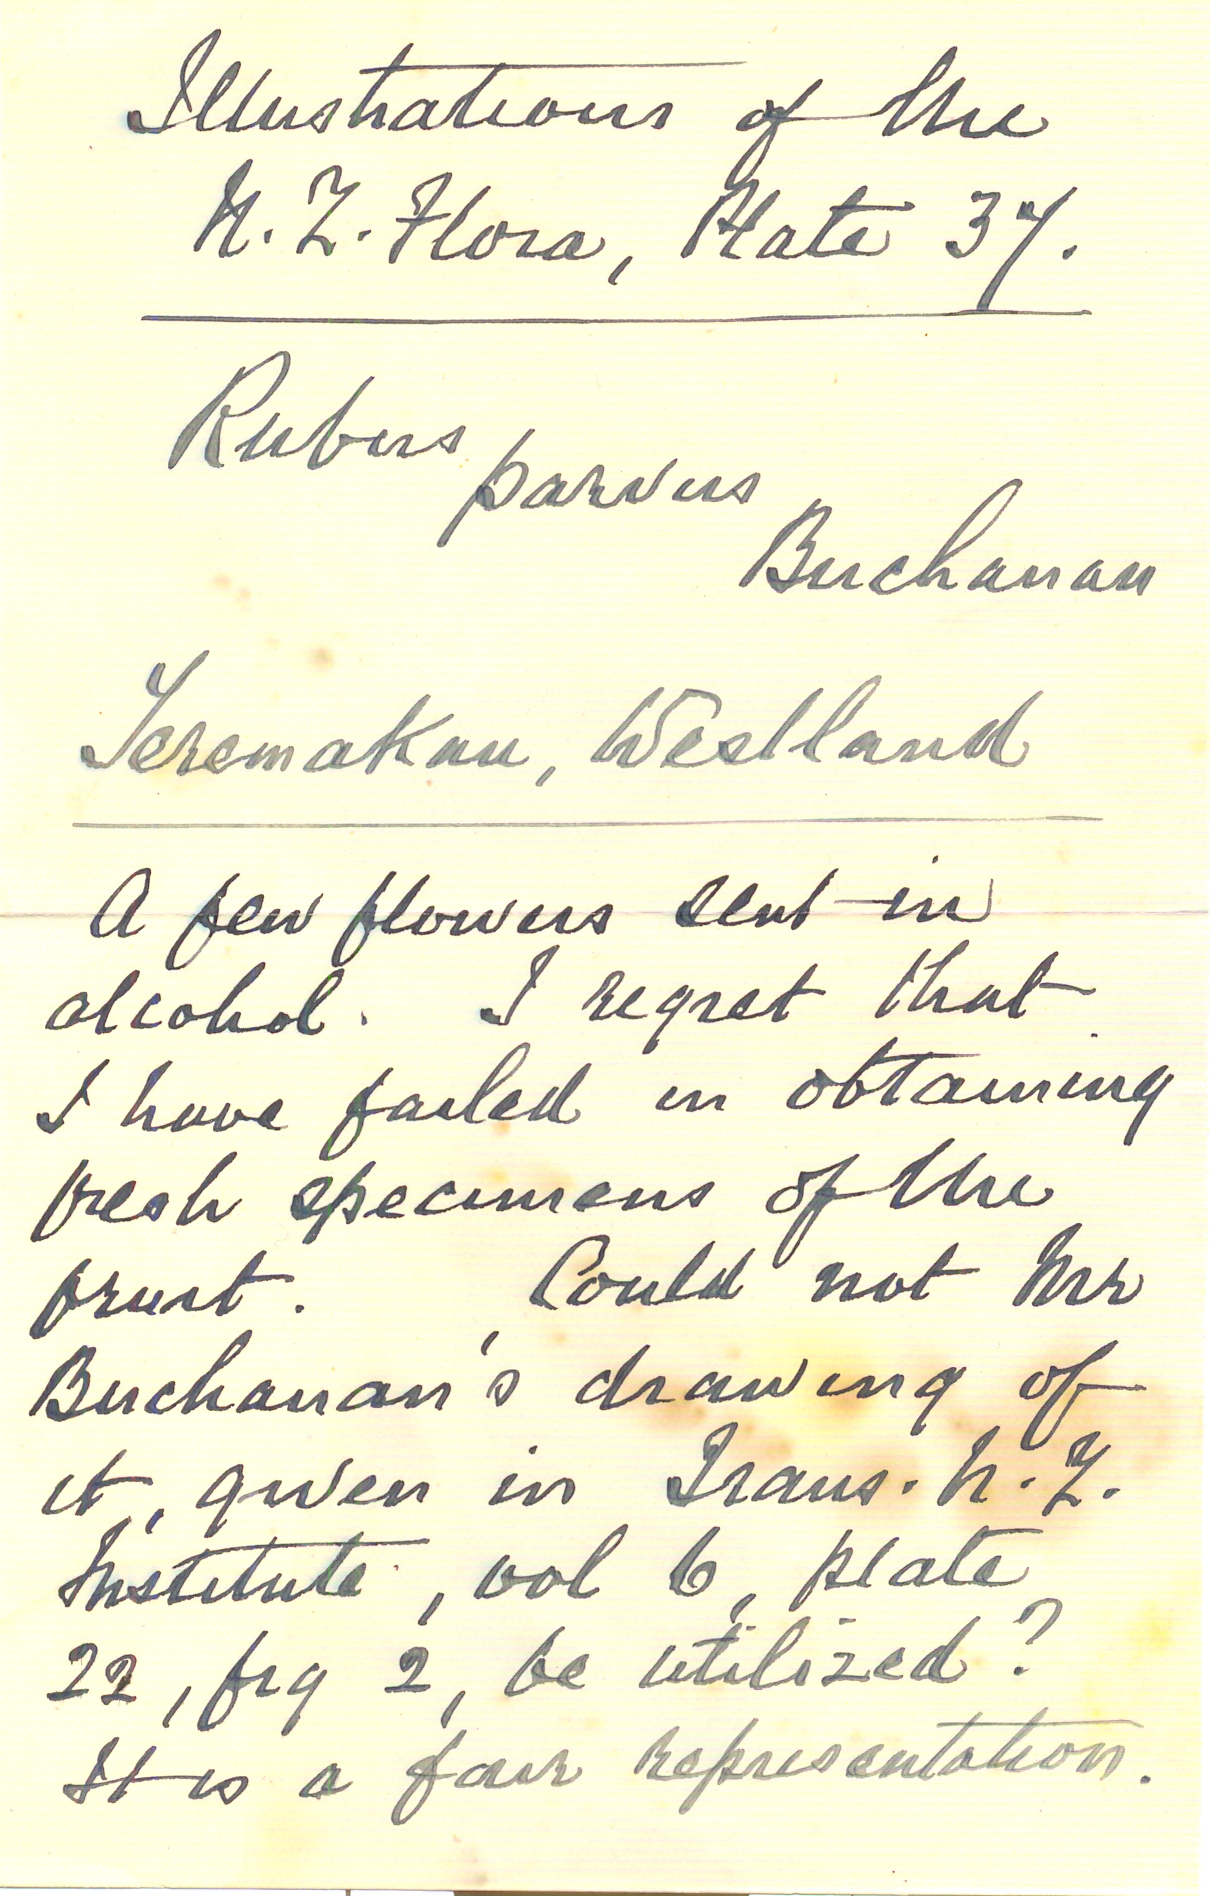 Illustrations of the
N.Z. Flora, Plate 37.
Rubus
parvus
Buchanan
Teremakau, Westland
A few flowers sent in
alcohol. I regret that
I have failed in obtaining
fresh specimens of the
fruit. Could not Mr
Buchanan's drawing of
it, given in Trans. N.Z.
Institute, vol 6, plate
22, fig 2, be utilized?
It is a fair representation.